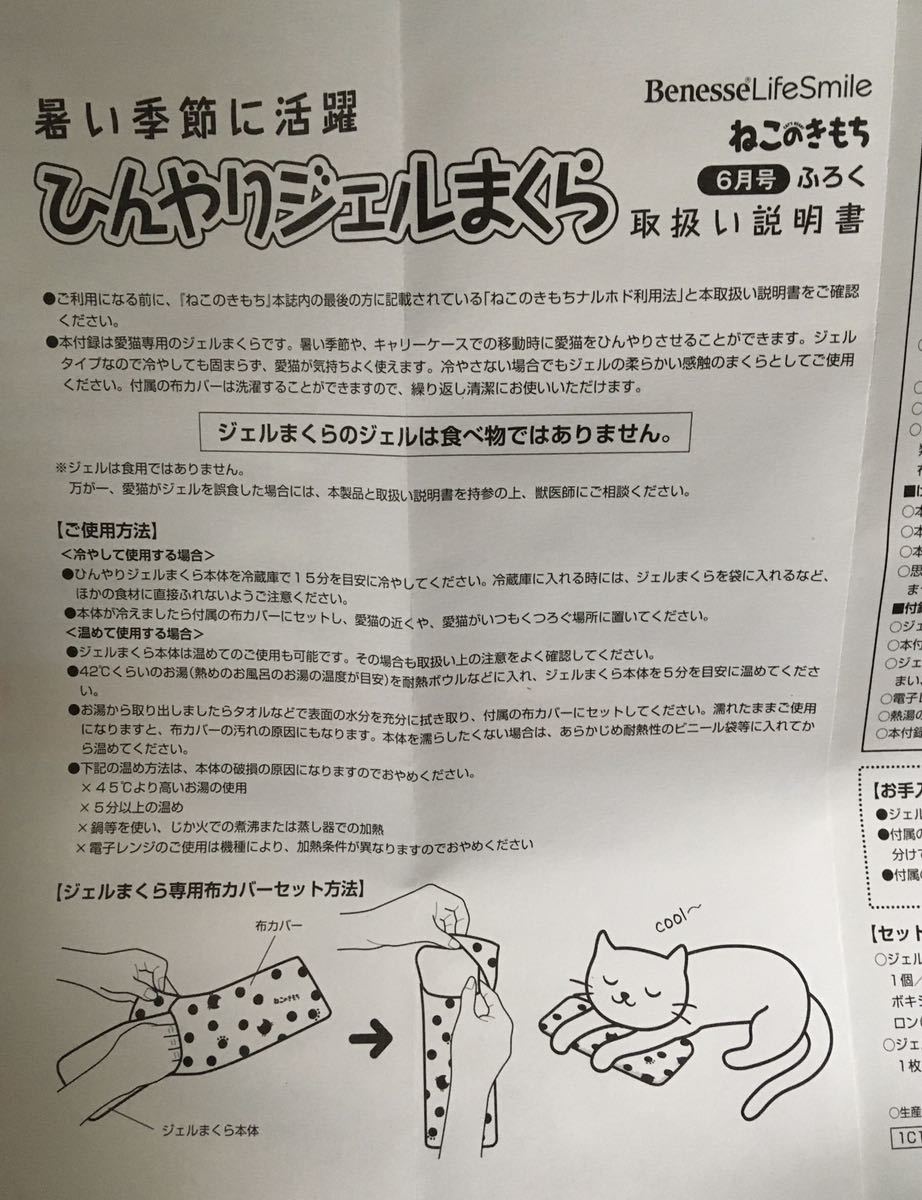 暑い季節に活躍
ひんやりジェルまくら
Benesse®LifeSmile
ねこのきもち
6月号 ふろく
取扱い説明書
●ご利用になる前に、『ねこのきもち』本誌内の最後の方に記載されている「ねこのきもちナルホド利用法」と本取扱い説明書をご確認
ください。
●本付録は愛猫専用のジェルまくらです。暑い季節や、キャリーケースでの移動時に愛猫をひんやりさせることができます。ジェル
タイプなので冷やしても固まらず、愛猫が気持ちよく使えます。冷やさない場合でもジェルの柔らかい感触のまくらとしてご使用
ください。付属の布カバーは洗濯することができますので、繰り返し清潔にお使いいただけます。
ジェルまくらのジェルは食べ物ではありません。
※ジェルは食用ではありません。
万が一、愛猫がジェルを誤食した場合には、本製品と取扱い説明書を持参の上、獣医師にご相談ください。
【ご使用方法】
＜冷やして使用する場合＞
●ひんやりジェルまくら本体を冷蔵庫で15分を目安に冷やしてください。冷蔵庫に入れる時には、ジェルまくらを袋に入れるなど、
ほかの食材に直接ふれないようご注意ください。
●本体が冷えましたら付属の布カバーにセットし、愛猫の近くや、愛猫がいつもくつろぐ場所に置いてください。
＜温めて使用する場合＞
●ジェルまくら本体は温めてのご使用も可能です。その場合も取扱い上の注意をよく確認してください。
●42℃くらいのお湯(熱めのお風呂のお湯の温度が目安)を耐熱ボウルなどに入れ、ジェルまくら本体を5分を目安に温めてくださ
い。
●お湯から取り出しましたらタオルなどで表面の水分を充分に拭き取り、付属の布カバーにセットしてください。濡れたままご使用
になりますと、布カバーの汚れの原因にもなります。本体を濡らしたくない場合は、あらかじめ耐熱性のビニール袋等に入れてか
ら温めてください。
●下記の温め方法は、本体の破損の原因になりますのでおやめください。
×45℃より高いお湯の使用
×5分以上の温め
×鍋等を使い、じか火での煮沸または蒸し器での加熱
×電子レンジのご使用は機種により、加熱条件が異なりますのでおやめください
【ジェルまくら専用布カバーセット方法】
布カバー
ねこのきもち
ジェルまくら本体
cool〜
■付
○ジェ
○本付
○ジェ
まい
○電子レ
○熱湯の
○本付録
【お手入
●ジェル
●付属の
分けて
●付属の
【セット
○ジェル
1個／
ボキシ
ロン
○ジェ
1枚
○生産
1C1